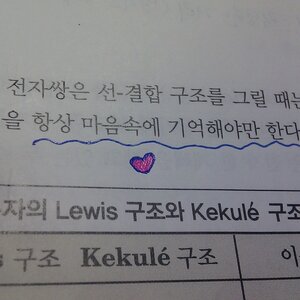 전자쌍은 선-결합 구조를 그릴 때는
을 항상 마음속에 기억해야만 한다
자의 Lewis 구조와 Kekulé 구조
구조 Kekulé 구조